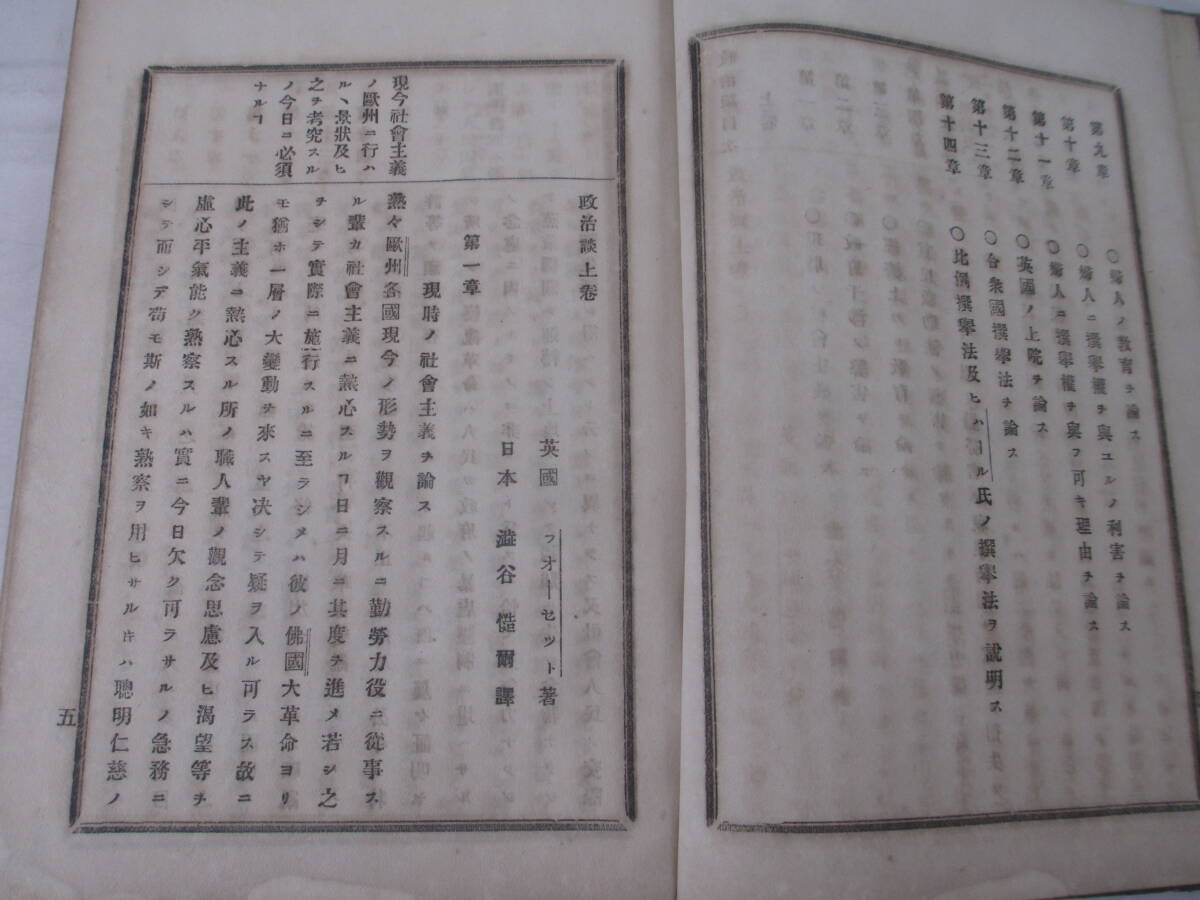 第九章 ○婦人ノ教育ヲ論ス
第十章 ○婦人ニ撰擧權ヲ與ユルノ利害ヲ論ス
第十一章 ○婦人ニ撰擧權ヲ與フ可キ理由ヲ論ス
第十二章 ○英國ノ上院ヲ論ス
第十三章 ○合衆國撰擧法ヲ論ス
第十四章 ○比例撰擧法及ヒハ ル氏ノ撰擧法ヲ說明ス
現今社會主義
ノ歐州ニ行ハ
ルヽ景狀及ヒ
之ヲ考究スル
ノ今日ニ必須
ナルヿ
政治談上卷
英國 フオーセツト著
日本 澁谷慥爾譯
第一章 現時ノ社會主義ヲ論ス
熟々歐州各國現今ノ形勢ヲ觀察スルニ勤勞力役ニ從事ス
ル輩カ社會主義ニ熱心スルヿ日ニ月ニ其度ヲ進メ若シ之
ヲシテ實際ニ施行スルニ至ラシメハ彼ノ佛國大革命ヨリ
モ猶ホ一層ノ大變動ヲ來スヤ决シテ疑ヲ入ル可ラス故ニ
此ノ主義ニ熱心スル所ノ職人輩ノ觀念思慮及ヒ渴望等ヲ
虛心平氣能ク熟察スルハ實ニ今日欠ク可ラサルノ急務ニ
シテ而シテ苟モ斯ノ如キ熟察ヲ用ヒサル𪜈ハ聰明仁慈ノ
五